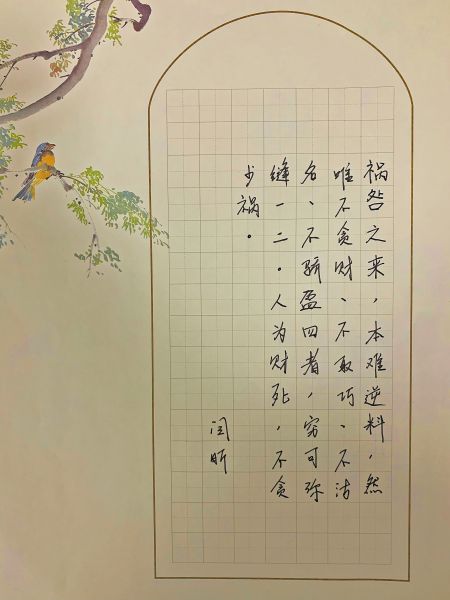 祸咎之来，本难逆料，然
唯不贪财、不取巧、不沽
名、不骄盈四者，穷可弥
缝一二。人为财死，不贪
少祸。
闫昕